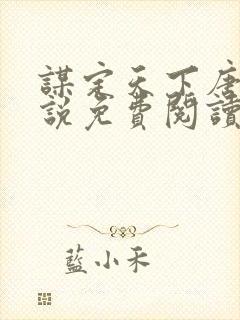 謀定天下唐
說免費閱讀
藍小禾